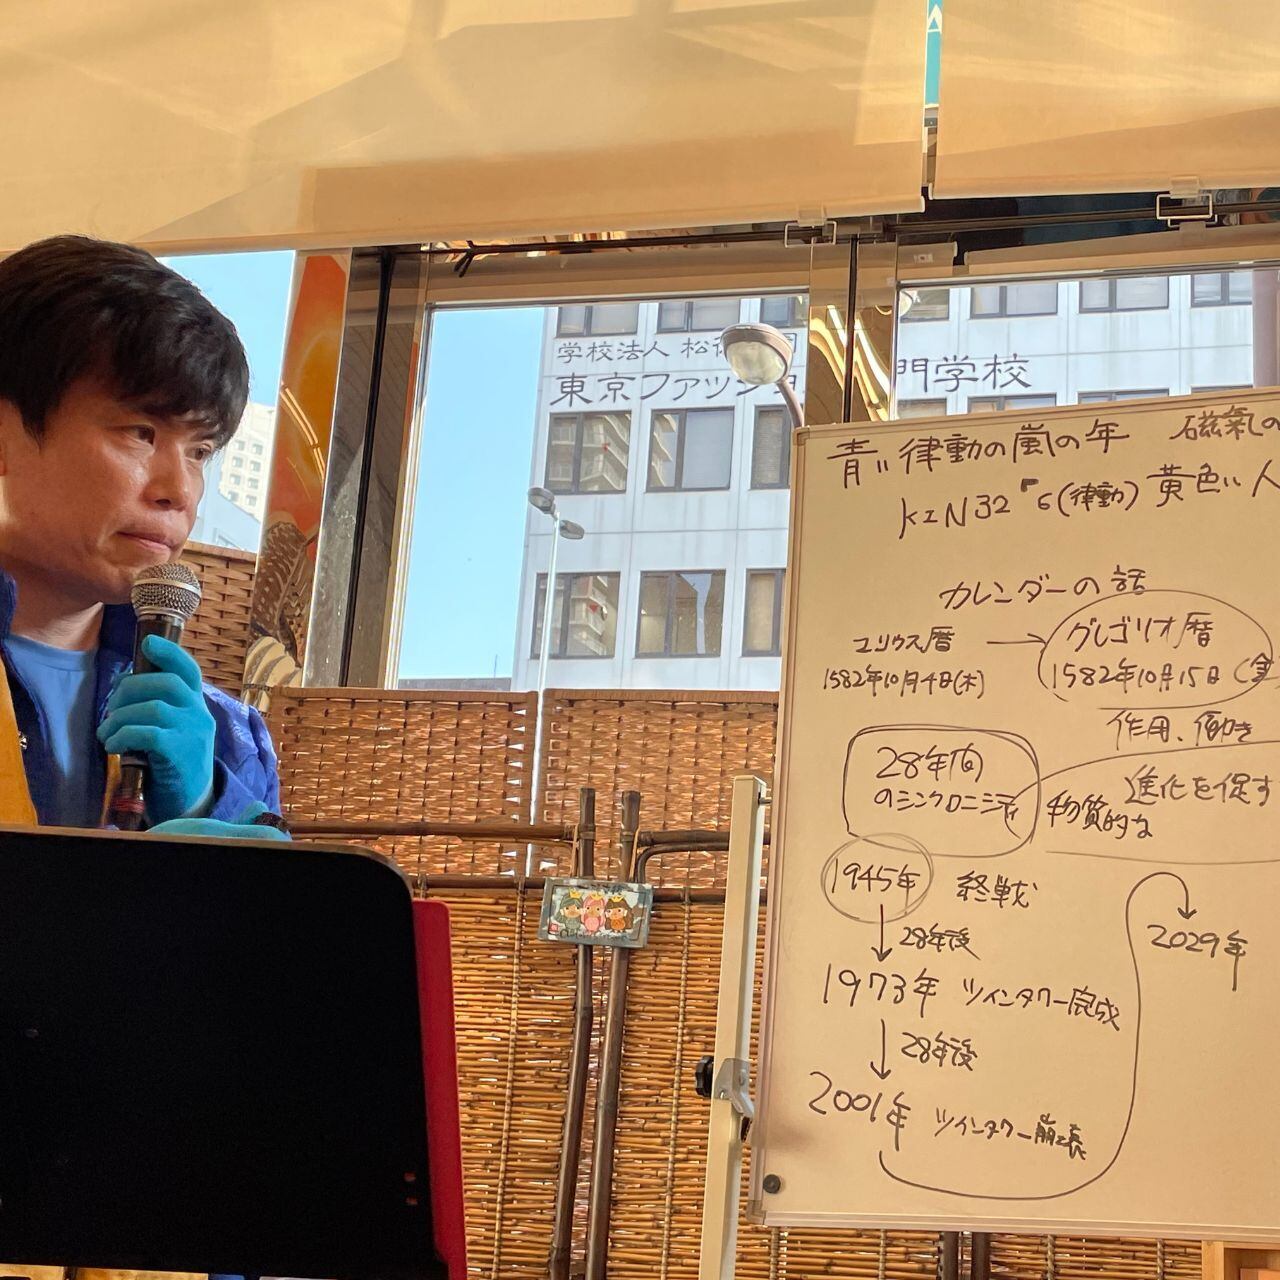 学校法人 松
東京ファッショ
門学校
青い律動の嵐の年 磁氣の
KIN32 6(律動) 黄色い人
カレンダーの話
ユリウス暦 → グレゴリオ暦
1582年10月4日(木) 1582年10月15日(金
作用、働き
28年間
のシンクロニシティ
進化を促す
物質的な
1945年 終戦
28年後
1973年 ツインタワー完成
28年後
2001年 ツインタワー崩壊
2029年